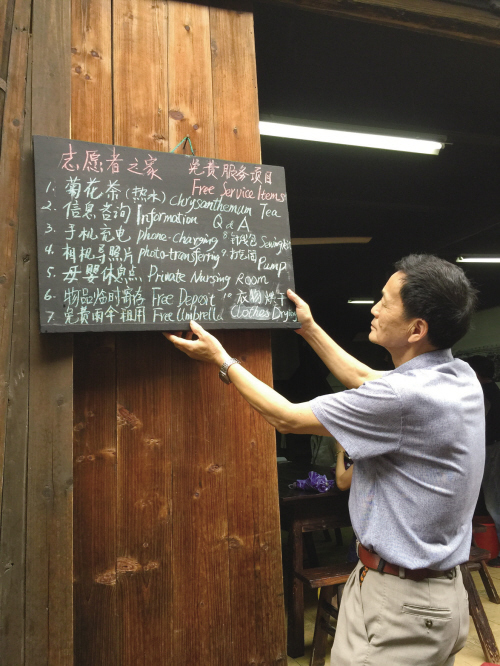 志愿者之家 免费服务项目
Free Service Items
1. 菊花茶(热水) Chrysanthemum Tea
2. 信息咨询 Information Q & A
3. 手机充电 phone-charging 8 针线包 Sewing
4. 相机导照片 photo-transferring 9 打气筒 Pump
5. 母婴休息点 Private Nursing Room
6. 物品临时寄存 Free Deposit 10 衣物烘干
7 免费雨伞租用 Free Umbrella Clothes Drying